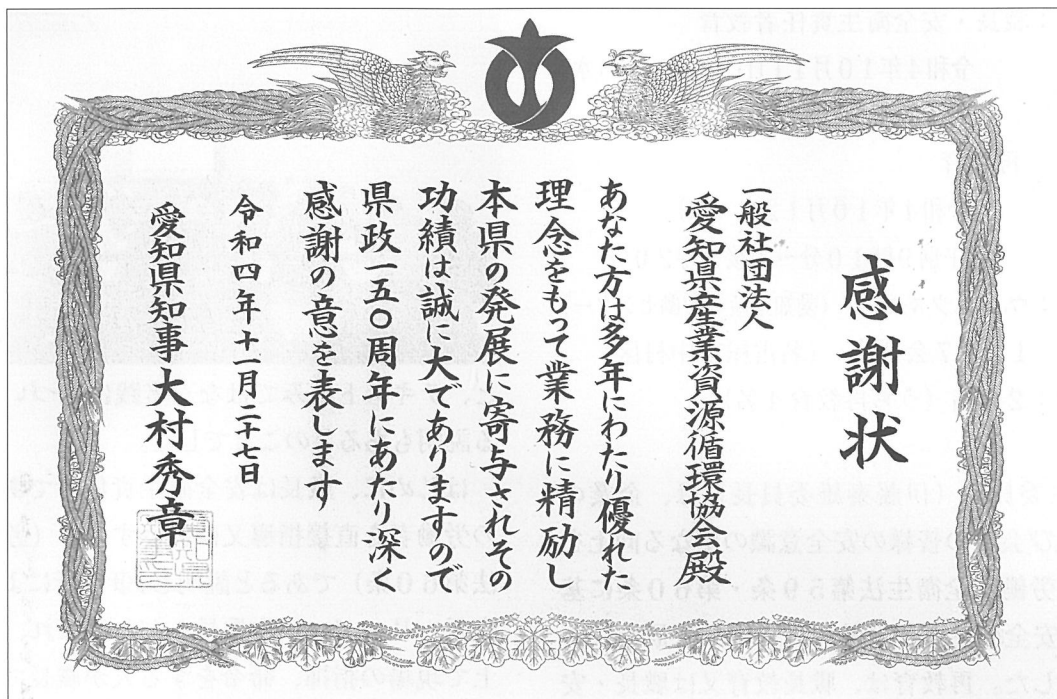 感謝状
一般社団法人
愛知県産業資源循環協会殿
あなた方は多年にわたり優れた
理念をもって業務に精励し
本県の発展に寄与されその
功績は誠に大でありますので
県政一五〇周年にあたり深く
感謝の意を表します
令和四年十一月二十七日
愛知県知事大村秀章